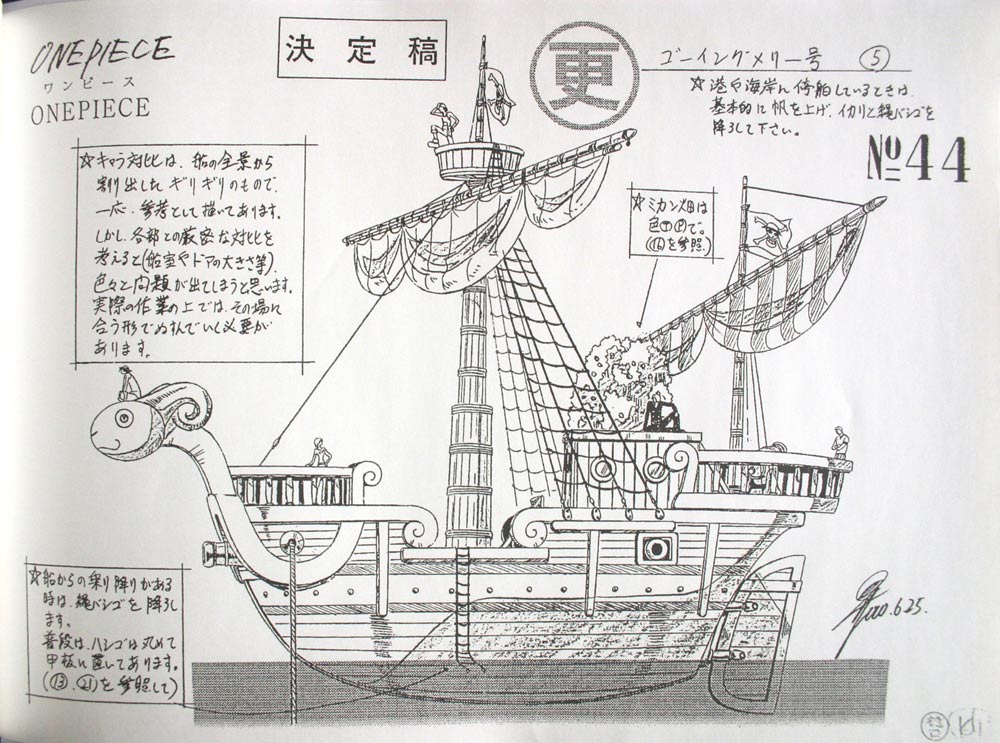 ONEPIECE
ワンピース
ONEPIECE
決定稿
更
ゴーイングメリー号 ⑤
☆港や海岸に停船しているときは、
基本的に帆を上げ、イカリと縄バシゴを
降ろして下さい。
No44
☆キャラ対比は、船の全景から
割り出したギリギリのもので、
一応、参考として描いてあります。
しかし、各部との厳密な対比を
考えると(船室やドアの大きさ等)、
色々と問題が出てしまうと思います。
実際の作業の上では、その場に
合う形で
いく必要が
あります。
☆ミカン畑は
色T.Pで。
(⑯を参照)
☆船からの乗り降りがある
時は、縄バシゴを降ろし
ます。
普段は、ハシゴは丸めて
甲板に置いてあります。
(⑬、㉑を参照して)
6.25.